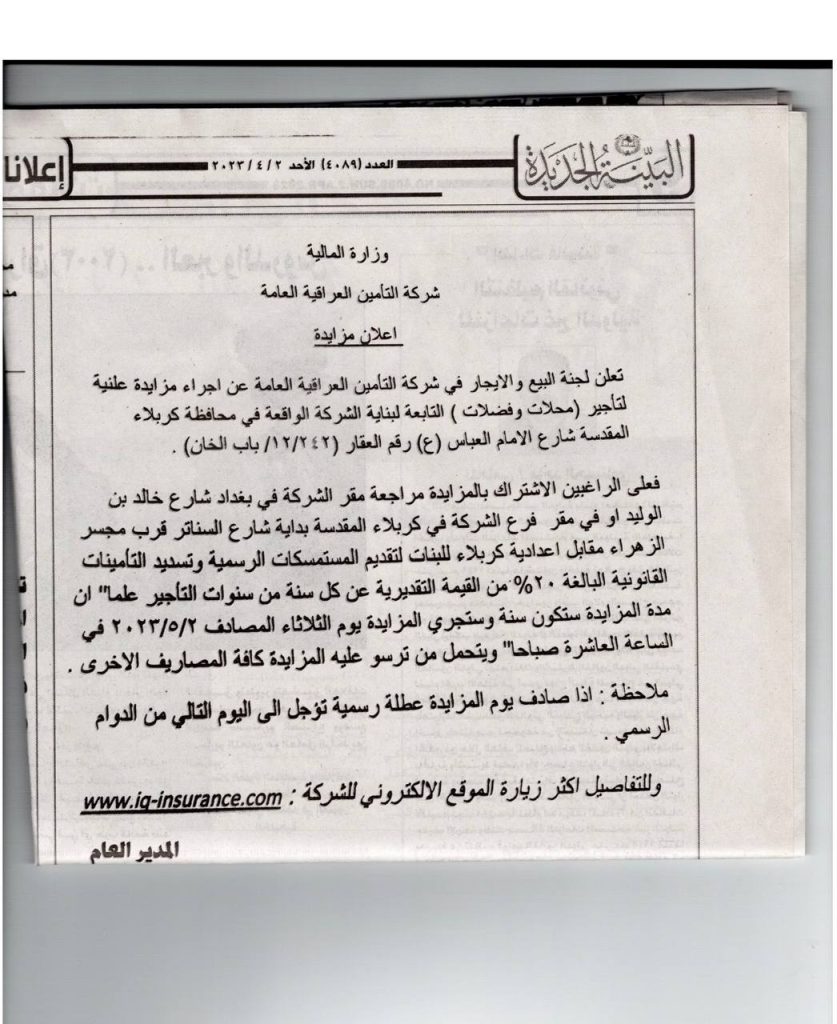 البيّنة الجديدة
العدد (٤٠٨٩) الأحد ٢ / ٤ / ٢٠٢٣
إعلانا
وزارة المالية
شركة التأمين العراقية العامة
اعلان مزايدة
تعلن لجنة البيع والايجار في شركة التأمين العراقية العامة عن اجراء مزايدة علنية
لتأجير (محلات وفضلات ) التابعة لبناية الشركة الواقعة في محافظة كربلاء
المقدسة شارع الامام العباس (ع) رقم العقار (١٢/٢٤٢/ باب الخان) .
فعلى الراغبين الاشتراك بالمزايدة مراجعة مقر الشركة في بغداد شارع خالد بن
الوليد او في مقر فرع الشركة في كربلاء المقدسة بداية شارع السناتر قرب مجسر
الزهراء مقابل اعدادية كربلاء للبنات لتقديم المستمسكات الرسمية وتسديد التأمينات
القانونية البالغة ٢٠% من القيمة التقديرية عن كل سنة من سنوات التأجير علما" ان
مدة المزايدة ستكون سنة وستجري المزايدة يوم الثلاثاء المصادف ٢٠٢٣/٥/٢ في
الساعة العاشرة صباحا" ويتحمل من ترسو عليه المزايدة كافة المصاريف الاخرى .
ملاحظة : اذا صادف يوم المزايدة عطلة رسمية تؤجل الى اليوم التالي من الدوام
الرسمي .
وللتفاصيل اكثر زيارة الموقع الالكتروني للشركة : www.iq-insurance.com
المدير العام